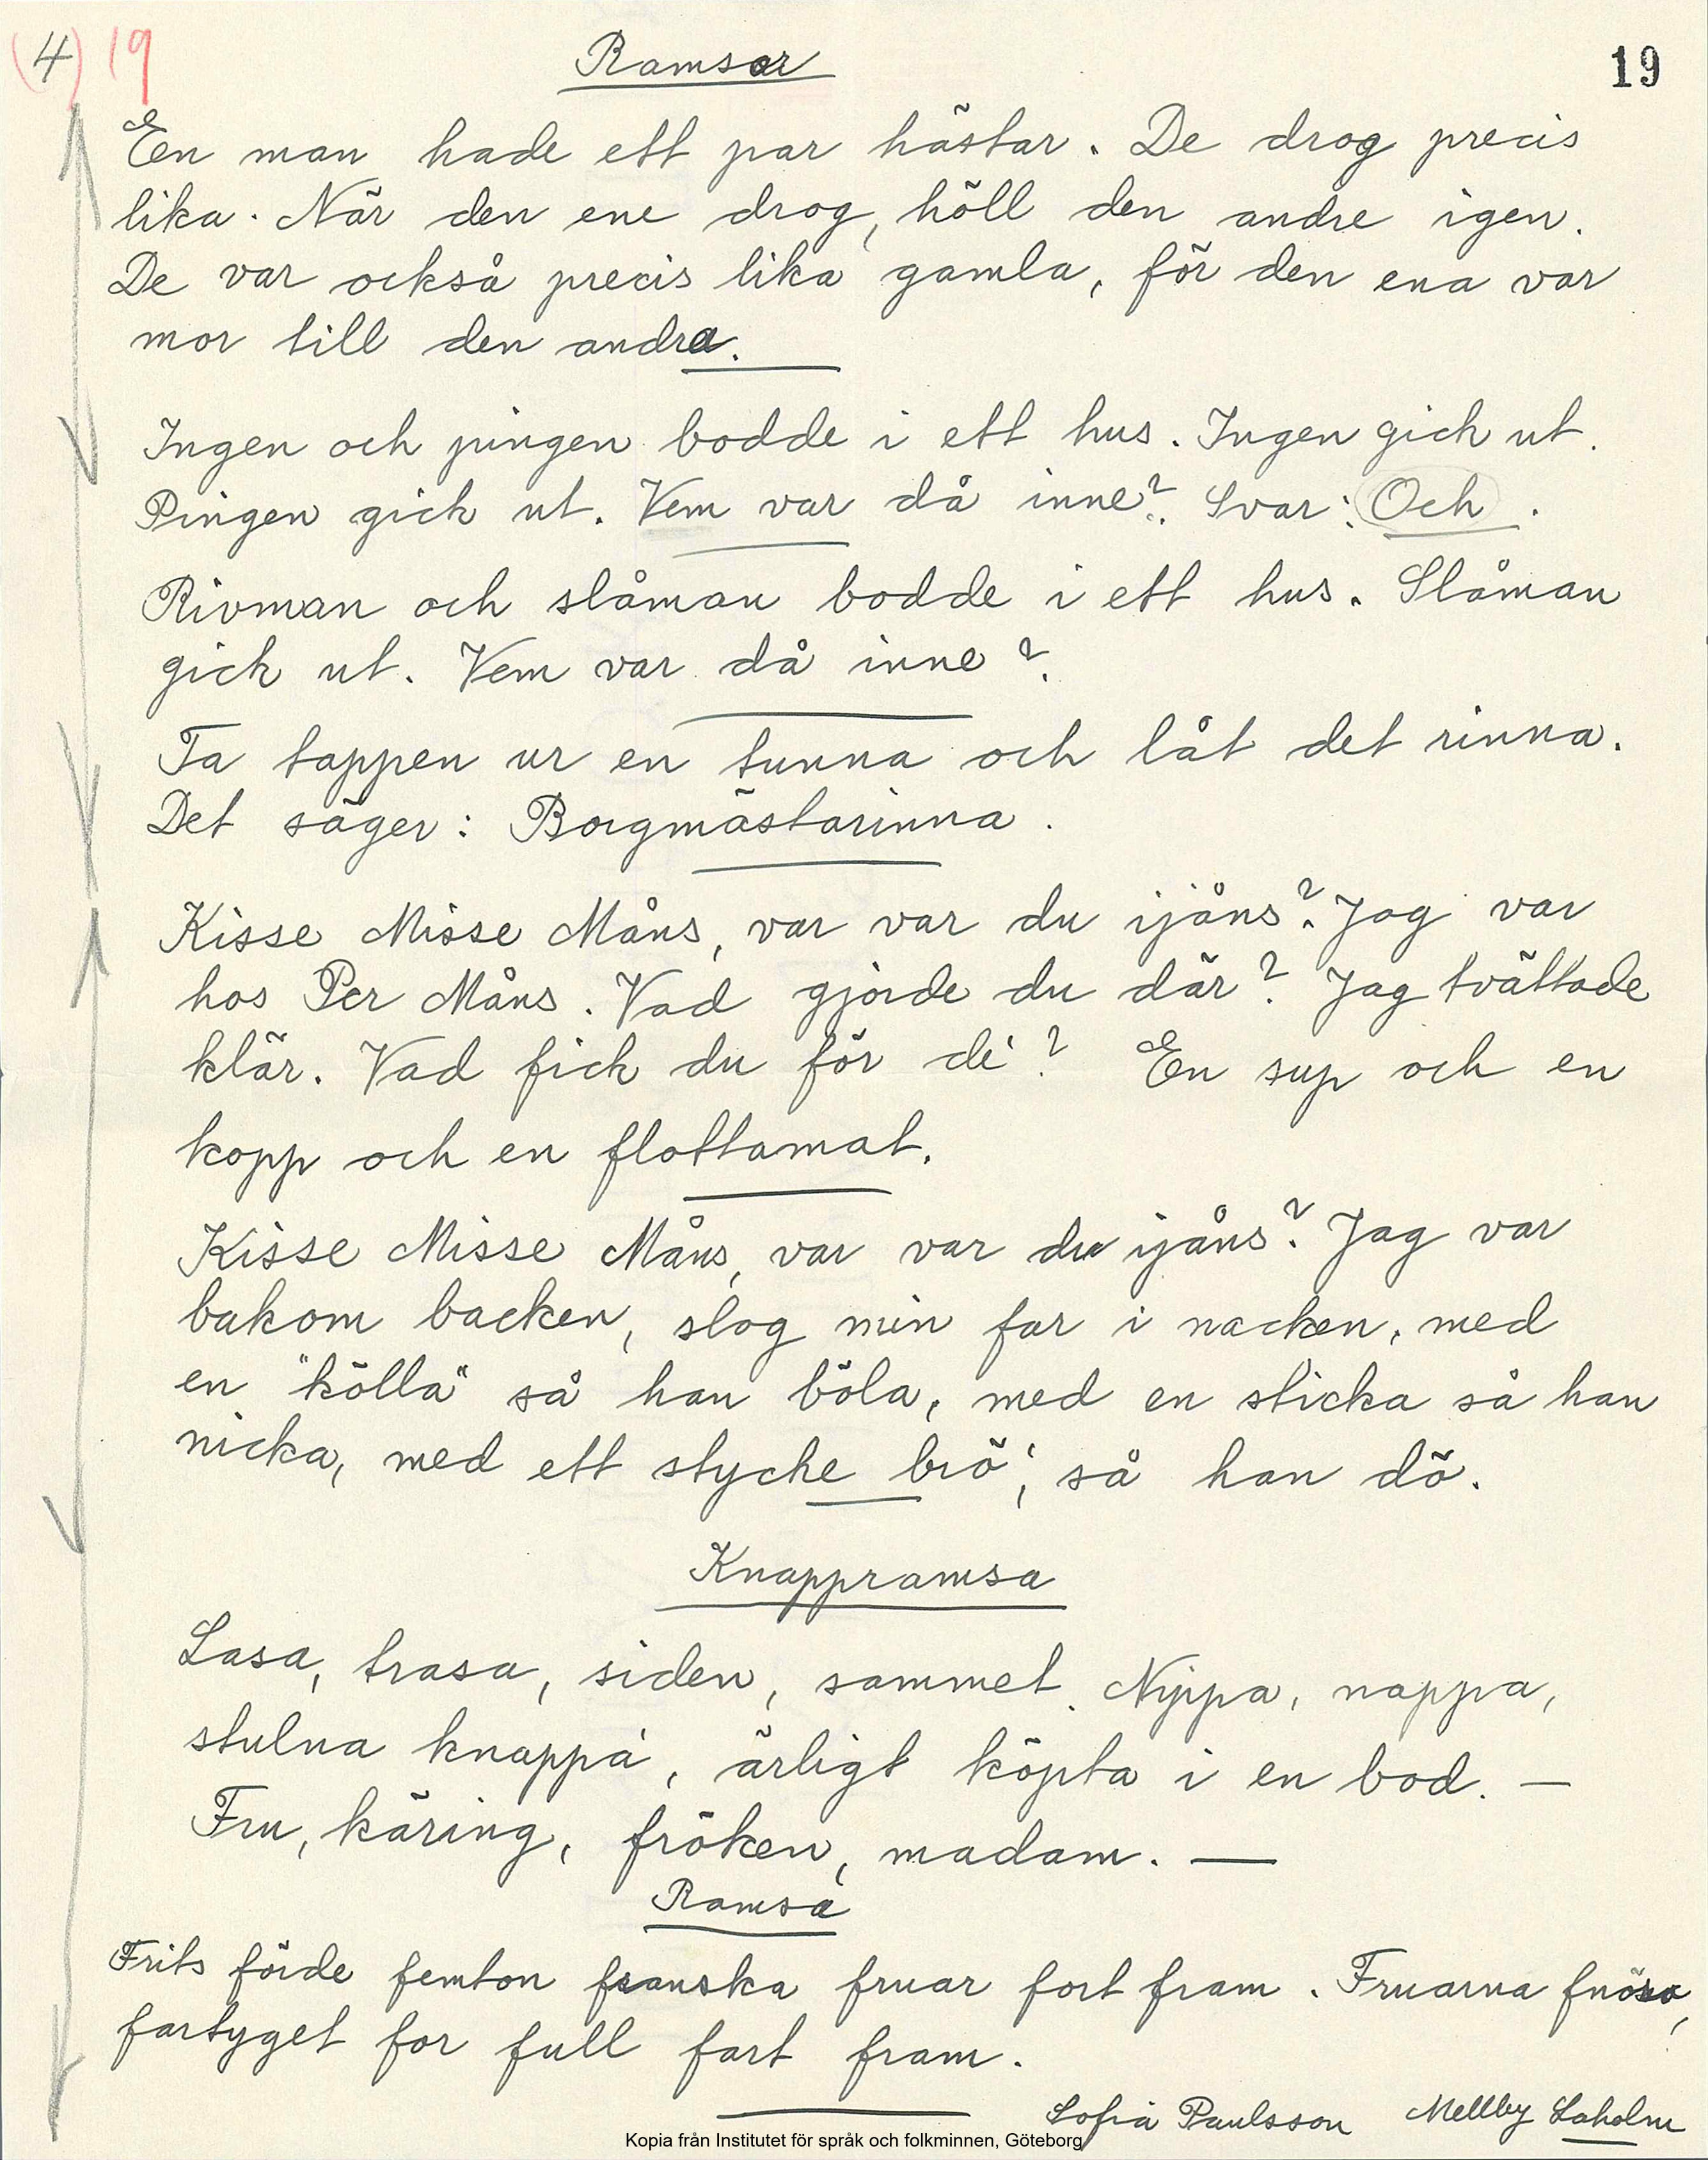 (4) 19
Ramsor
19
En man hade ett par hästar. De drog precis
lika. När den ene drog, höll den andre igen.
De var också precis lika gamla, för den ena var
mor till den andra.
Ingen och pingen bodde i ett hus. Ingen gick ut.
Pingen gick ut. Vem var då inne? Svar: Och.
Rivman och slåman bodde i ett hus. Slåman
gick ut. Vem var då inne?
Ta tappen ur en tunna och låt det rinna.
Det säger: Borgmästarinna.
Kisse Misse Måns, var var du ijåns? Jag var
hos Per Måns. Vad gjorde du där? Jag tvättade
klär. Vad fick du för de'? En sup och en
kopp och en flottamat.
Kisse Misse Måns, var var du ijåns? Jag var
bakom backen, slog min far i nacken, med
en "kölla" så han böla, med en sticka så han
nicka, med ett stycke brö', så han dö.
Knappramsa
Lasa, trasa, siden, sammet. Nippa, nappa,
stulna knappa', ärligt köpta i en bod. —
Fru, käring, fröken, madam. —
Ramsa
Frits förde femton franska fruar fort fram. Fruarna fnöso,
fartyget for full fart fram.
Sofia Paulsson Mellby Laholm
Kopia från Institutet för språk och folkminnen, Göteborg